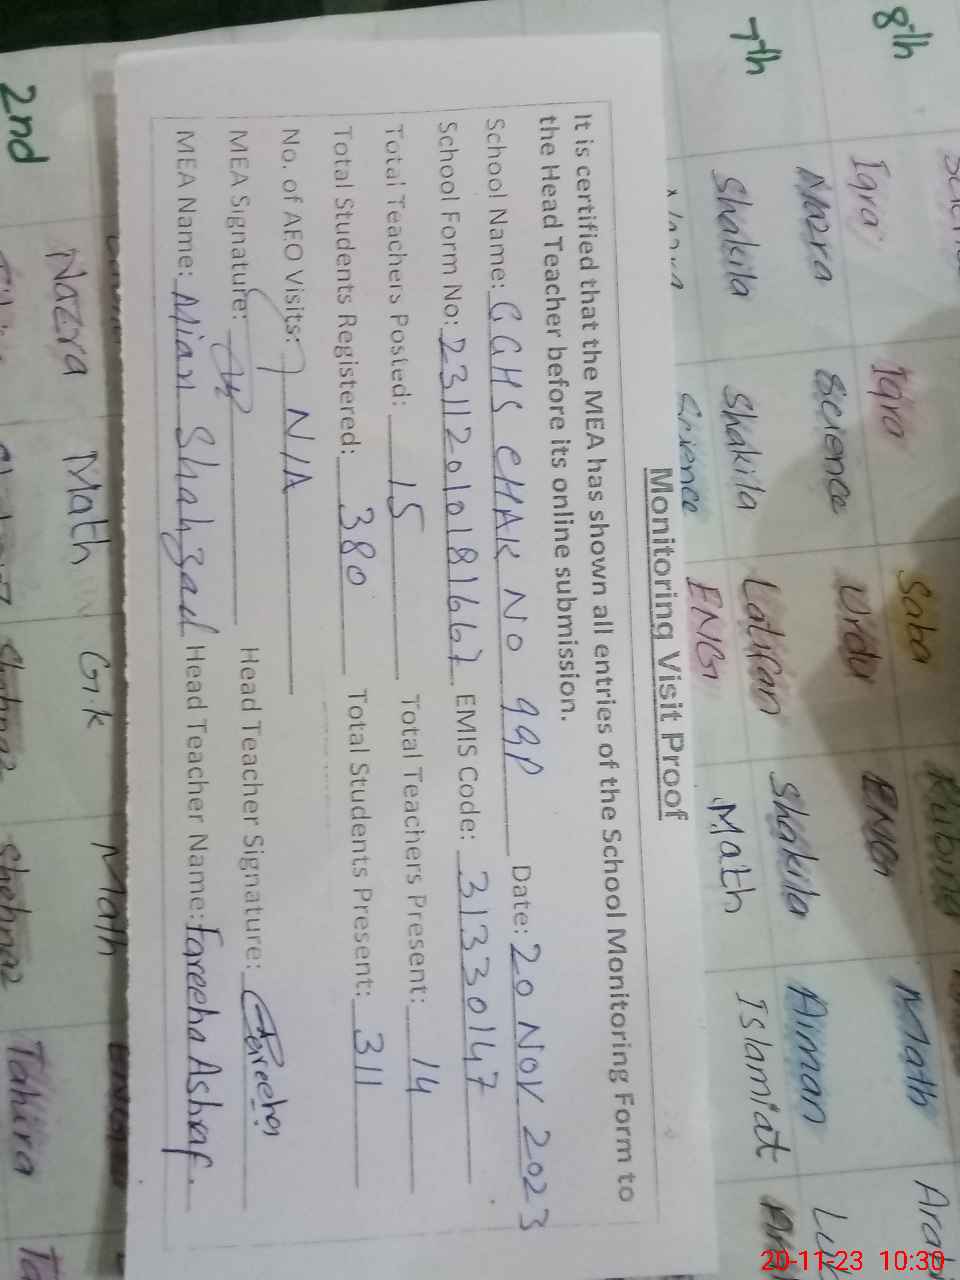 Monitoring Visit Proof
It is certified that the MEA has shown all entries of the School Monitoring Form to
the Head Teacher before its online submission.
School Name: GGHS CHAK NO 99P Date: 20 NOV 2023
School Form No: 23112010181667 EMIS Code: 31330147
Total Teachers Posted: 15 Total Teachers Present: 14
Total Students Registered: 380 Total Students Present: 311
No. of AEO Visits: N/A
MEA Signature: Head Teacher Signature: Fareeha
MEA Name: Mian Shahzad Head Teacher Name: Fareeha Ashaf.
8th Iqra Iqra Saba Rubina
Urdu ENG Math Arabi
Nazra Science
7th Shakila Shakila Latifan Shakila Aiman
Science ENG Math Islamiat
2nd Nazra Math G.k Math
Shehnaz Shehnaz Tahira
20-11-23 10:30